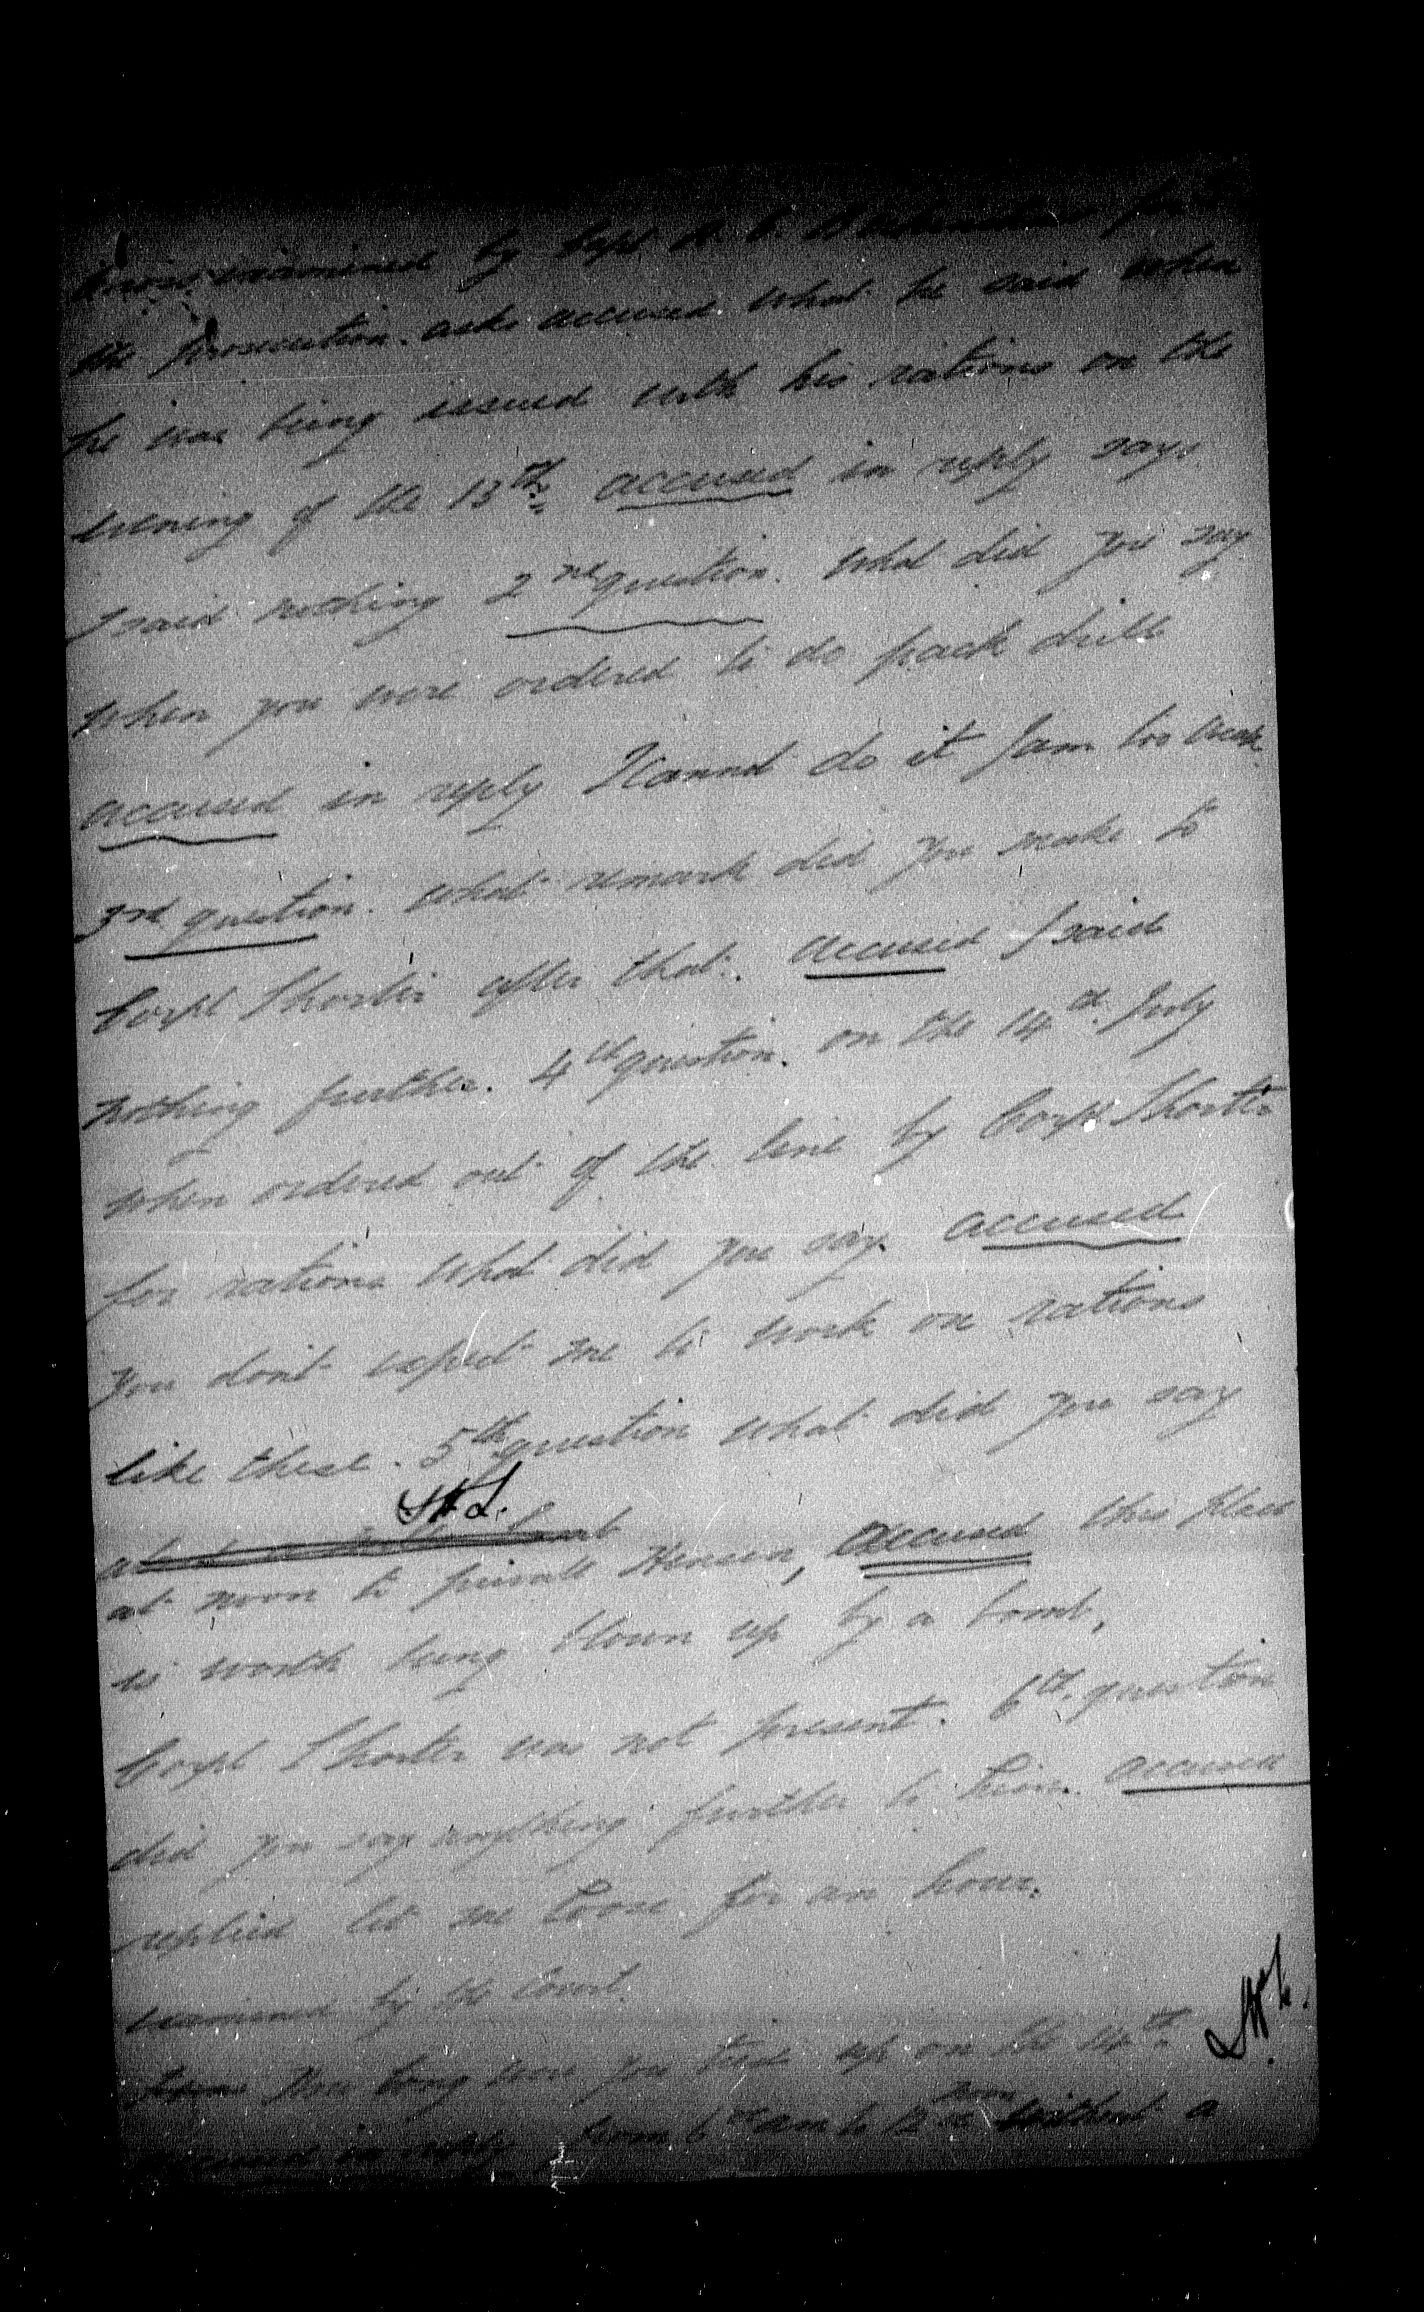 Cross examined by Capt A. C. for
the Prosecution. asks accused what he said when
he was being issued with his rations on the
evening of the 13th. accused in reply says
I said nothing 2nd question. What did you say
when you were ordered to do pack drill
accused in reply I cannot do it I am too weak
3rd question. What remark did you make to
Corpl Shorter after that. accused I said
nothing further. 4th question. on the 14th July
when ordered out of the line by Corpl Shorter
for rations what did you say. accused
you dont expect me to work on rations
like these. 5th question what did you say
at noon to private , accused this place
is worth being blown up by a bomb,
Corpl Shorter was not present. 6th question
did you say anything further to him. accused
replied let me loose for an hour.
examined by the Court.
How long were you tied up on the 14th.
accused in reply from 6 am to 12 noon without a